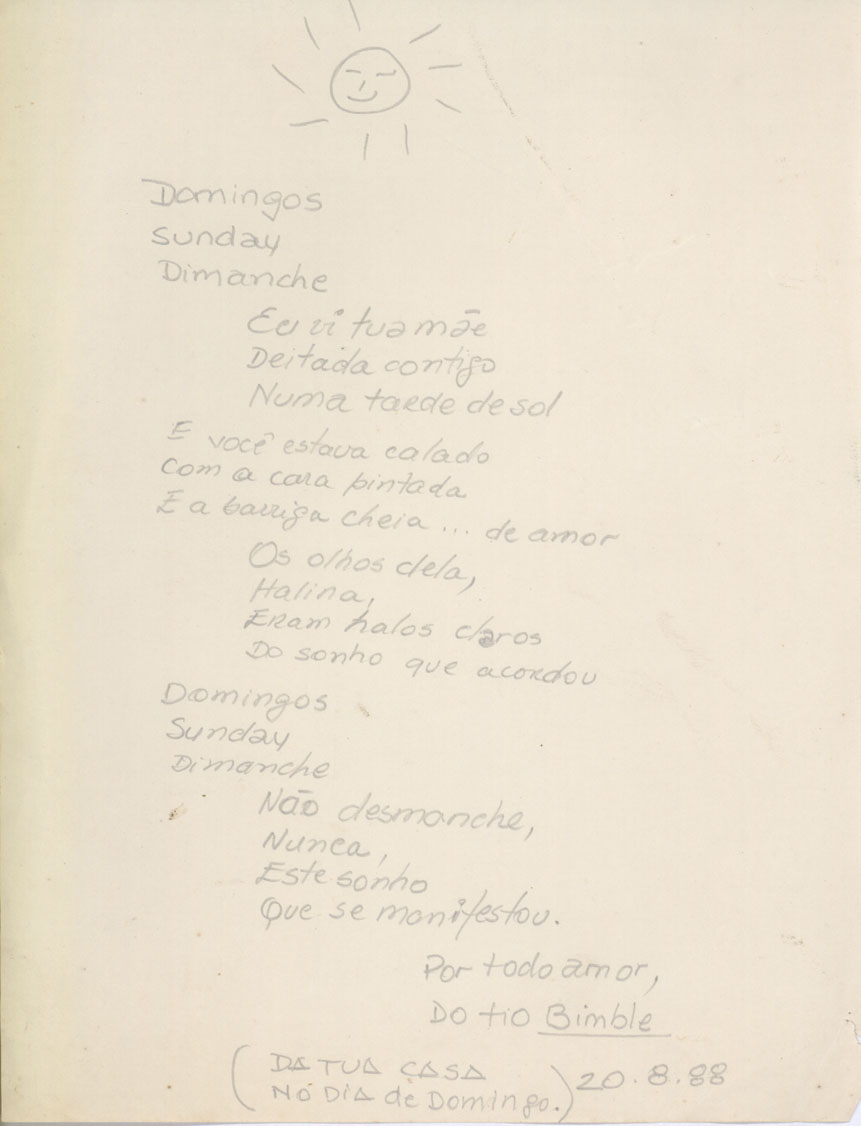 Domingos
Sunday
Dimanche
Eu vi tua mãe
Deitada contigo
Numa tarde de sol
E você estava calado
Com a cara pintada
E a barriga cheia ... de amor
Os olhos dela,
Halina,
Eram halos claros
Do sonho que acordou
Domingos
Sunday
Dimanche
Não desmanche,
Nunca,
Este sonho
Que se manifestou.
Por todo amor,
Do tio Bimble
(DA TUA CASA
NO DIA de Domingo.) 20.8.88